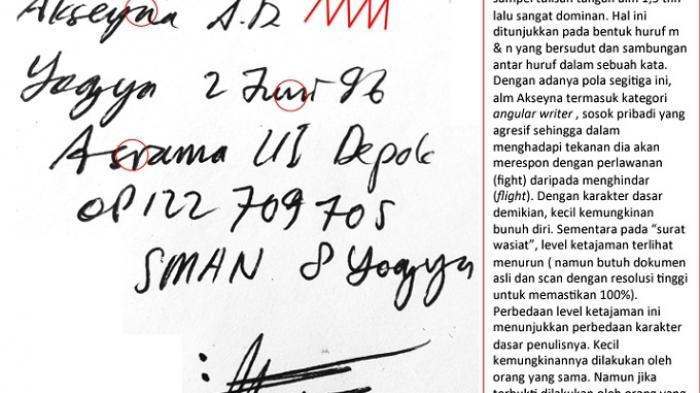 Akseyna A.D
Yogya 2 Juni 96
Asrama UI Depok
08122 709 705
SMAN 8 Yogya
lalu sangat dominan. Hal ini
ditunjukkan pada bentuk huruf m
& n yang bersudut dan sambungan
antar huruf dalam sebuah kata.
Dengan adanya pola segitiga ini,
alm Akseyna termasuk kategori
angular writer , sosok pribadi yang
agresif sehingga dalam
menghadapi tekanan dia akan
merespon dengan perlawanan
(fight) daripada menghindar
(flight). Dengan karakter dasar
demikian, kecil kemungkinan
bunuh diri. Sementara pada “surat
wasiat”, level ketajaman terlihat
menurun ( namun butuh dokumen
asli dan scan dengan resolusi tinggi
untuk memastikan 100%).
Perbedaan level ketajaman ini
menunjukkan perbedaan karakter
dasar penulisnya. Kecil
kemungkinannya dilakukan oleh
orang yang sama. Namun jika